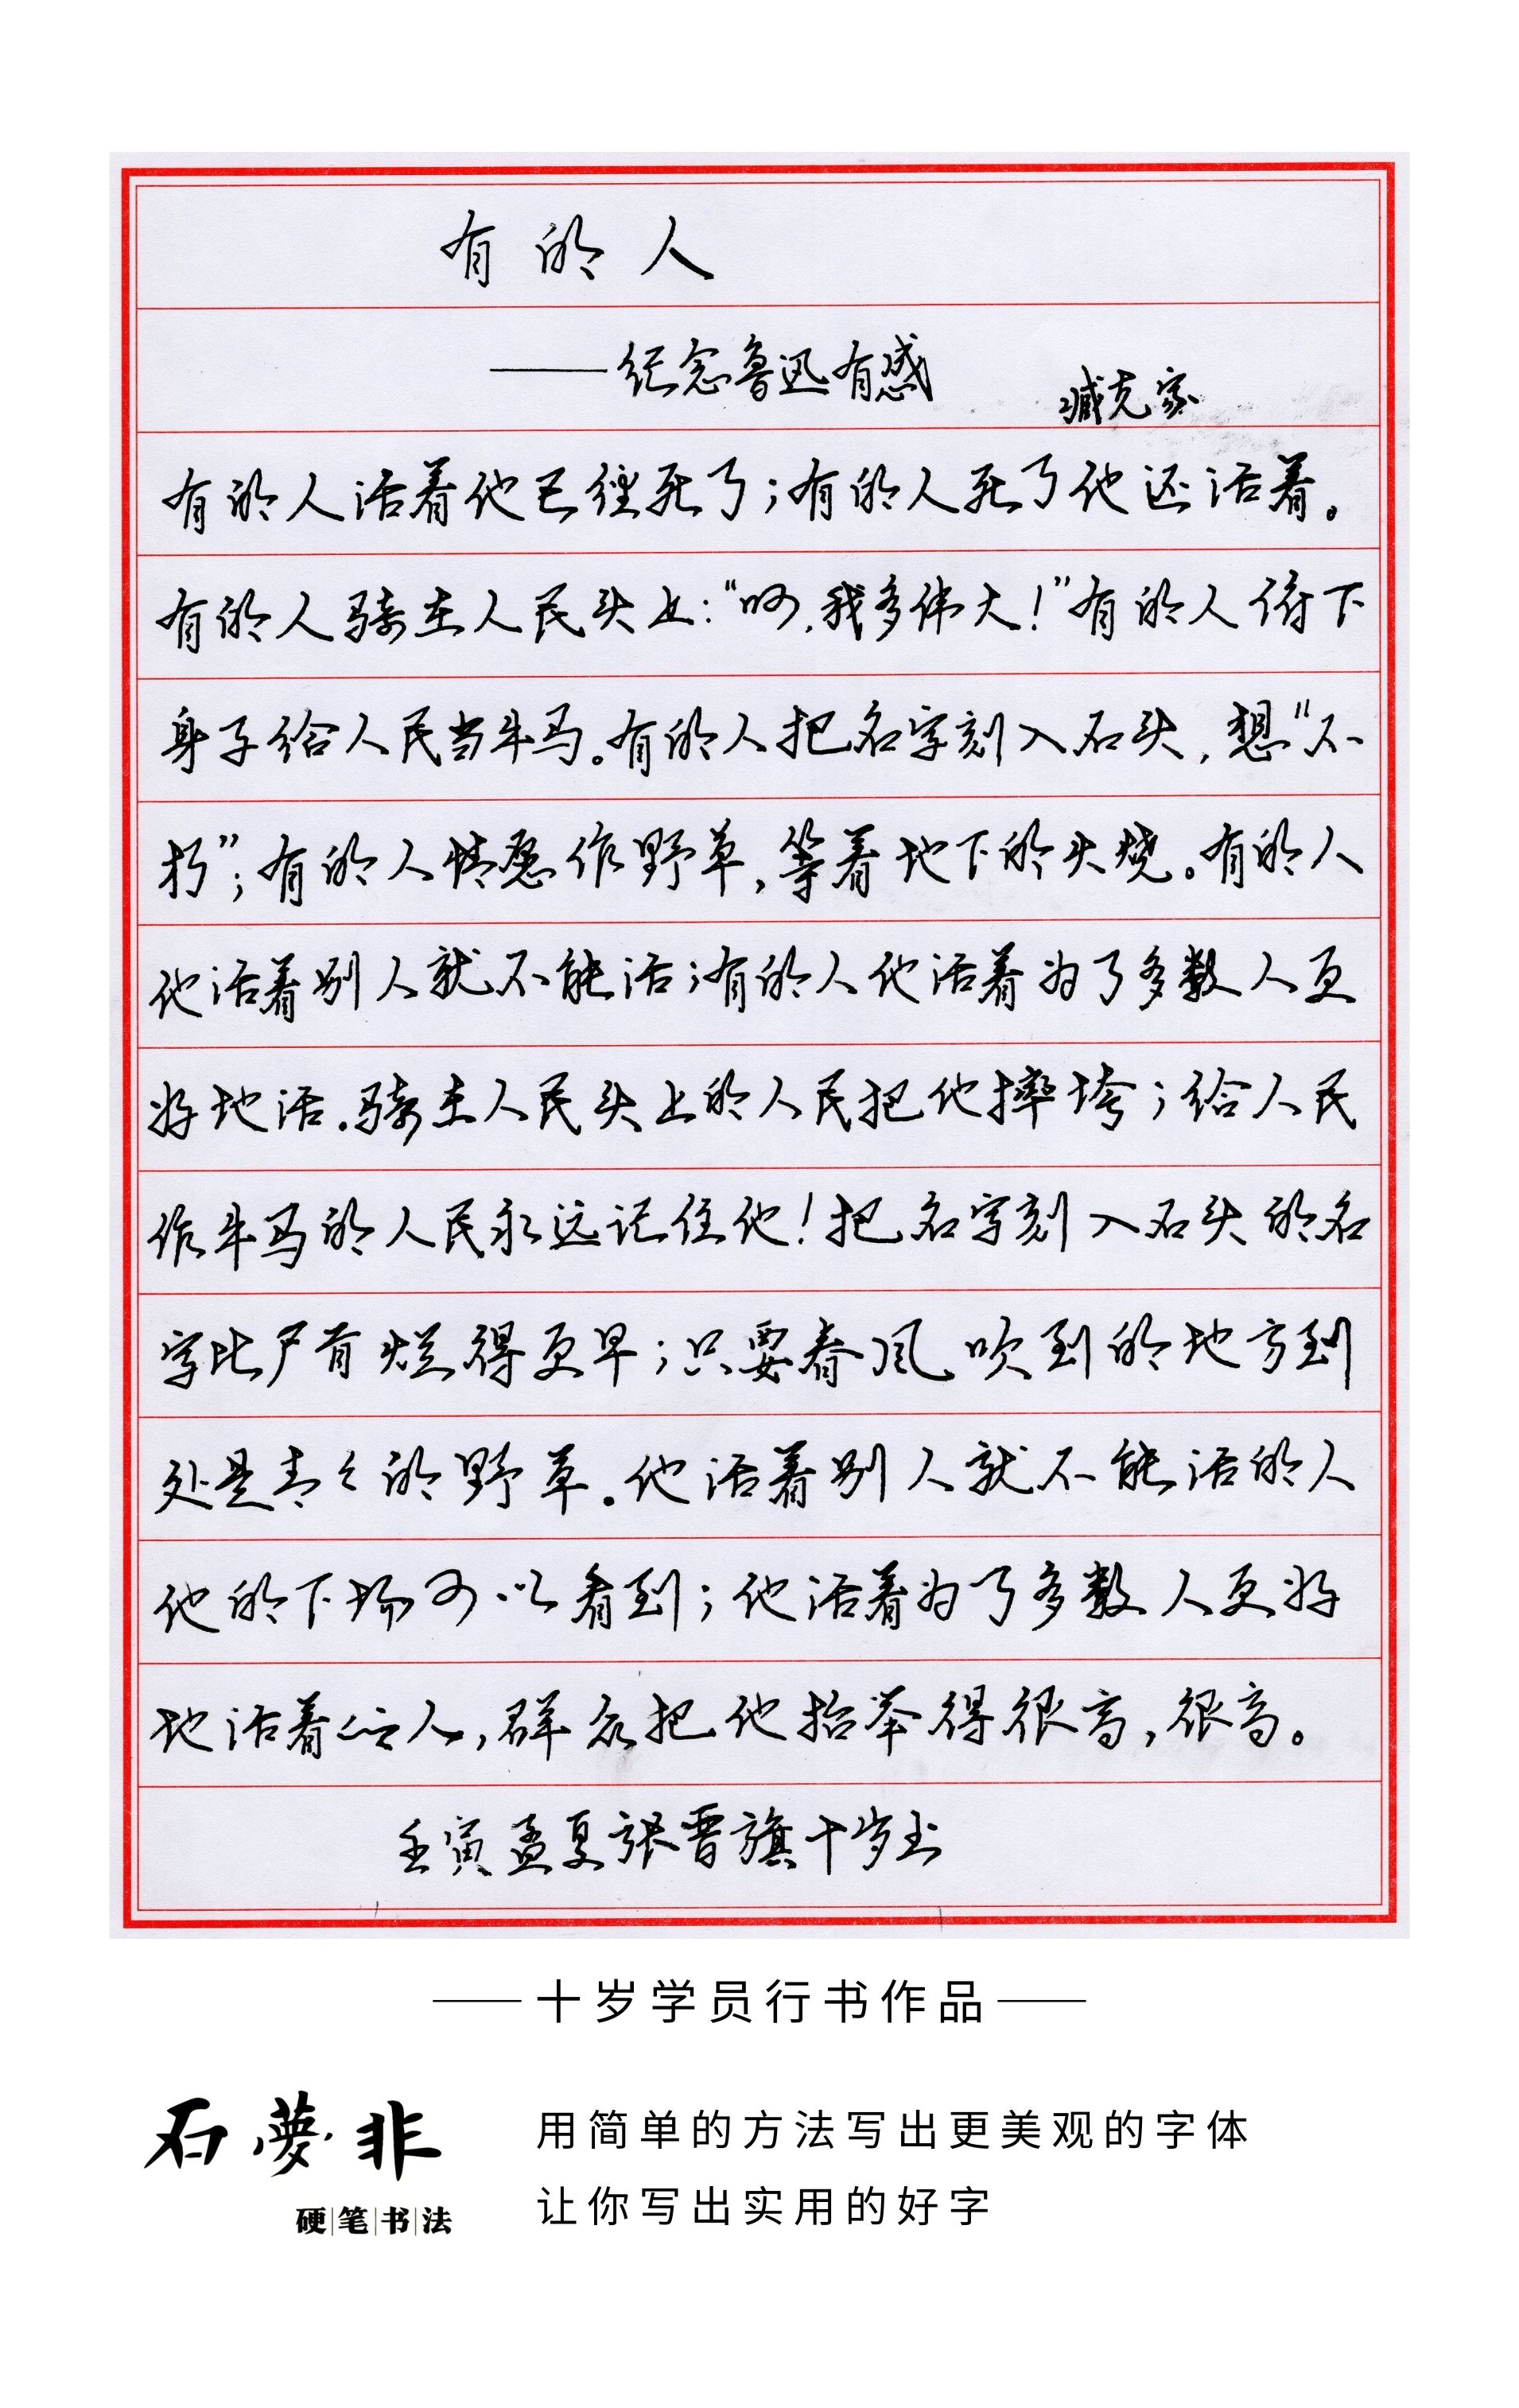 有的人
——纪念鲁迅有感 臧克家
有的人活着他已经死了；有的人死了他还活着。
有的人骑在人民头上：“呵，我多伟大！”有的人俯下
身子给人民当牛马。有的人把名字刻入石头，想“不
朽”；有的人情愿作野草，等着地下的火烧。有的人
他活着别人就不能活；有的人他活着为了多数人更
好地活。骑在人民头上的人民把他摔垮；给人民
作牛马的人民永远记住他！把名字刻入石头的名
字比尸首烂得更早；只要春风吹到的地方到
处是青々的野草。他活着别人就不能活的人
他的下场可以看到；他活着为了多数人更好
地活着的人，群众把他抬举得很高，很高。
壬寅孟夏张晋旗十岁书
——十岁学员行书作品——
石夢非
硬|笔|书|法
用简单的方法写出更美观的字体
让你写出实用的好字